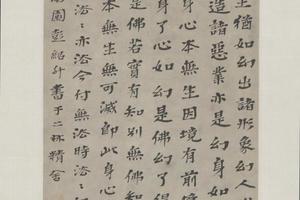 生猶如幻出諸形象幻人
造諸惡業亦是幻身如
身心本無生因境有前境
身了心如幻是佛幻了得
是佛若實有知別無佛
本無生無可滅即此身心
法法亦法今付無法時法法
園彭紹升書于二林精舍